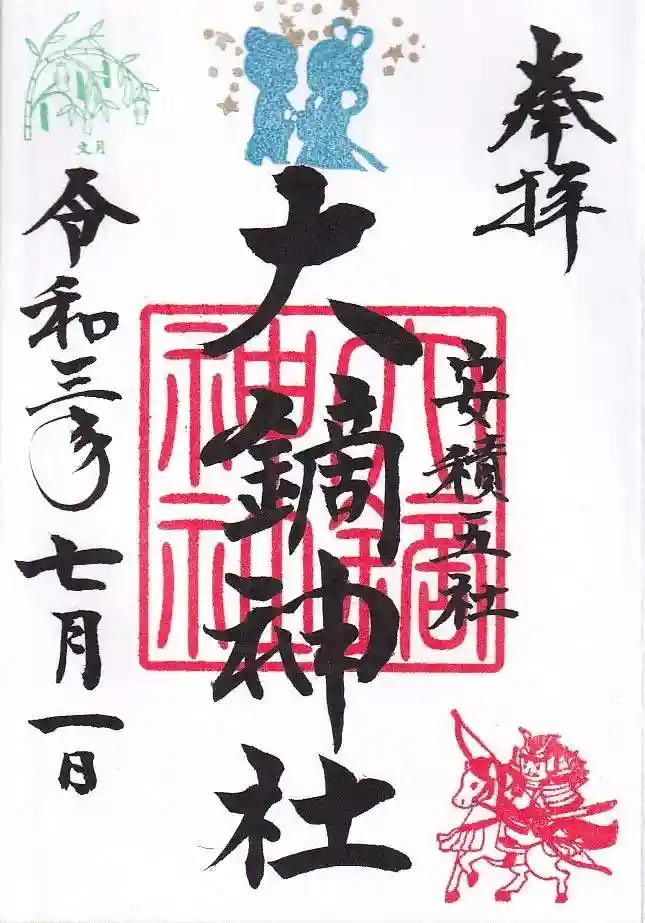 奉拝
安積五社
大鏑神社
令和三年七月一日
文月
大鏑神社